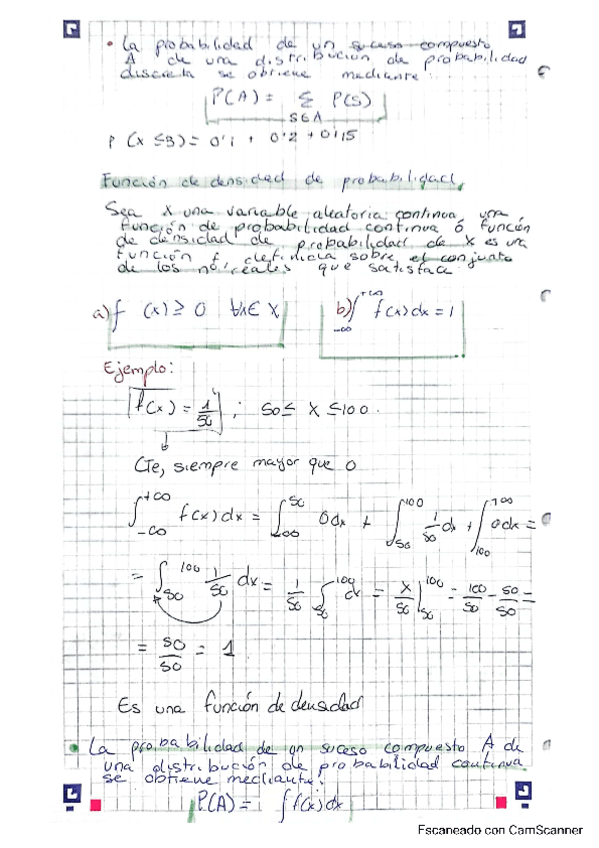 • La probabilidad de un suceso compuesto
A de una distribución de probabilidad
discreta se obtiene mediante:
P(A) = Σ P(s)
SEA
P (X ≤3) = 0'1 + 0'2 + 0'15
Función de densidad de probabilidad
Sea X una variable aleatoria continua, una
función de probabilidad continua ó función
de densidad de probabilidad de X es una
función f definida sobre el conjunto
de los nos reales que satisface
a) f (x) ≥ 0 ∀x∈ X b) ∫ +∞ -∞ f(x) dx = 1
Ejemplo:
f(x) = 1/50 ; 50 ≤ X ≤ 100.
Cte, siempre mayor que 0
∫ +∞ -∞ f(x) dx = ∫ 50 -∞ 0dx + ∫ 100 50 1/50 dx + ∫ +∞ 100 0dx =
= ∫ 100 50 1/50 dx = 1/50 ∫ 100 50 dx = x/50 | 100 50 = 100/50 - 50/50 =
= 50/50 = 1
Es una función de densidad
• La probabilidad de un suceso compuesto A de
una distribución de probabilidad continua
se obtiene mediante:
P(A) = ∫ f(x) dx
Escaneado con CamScanner